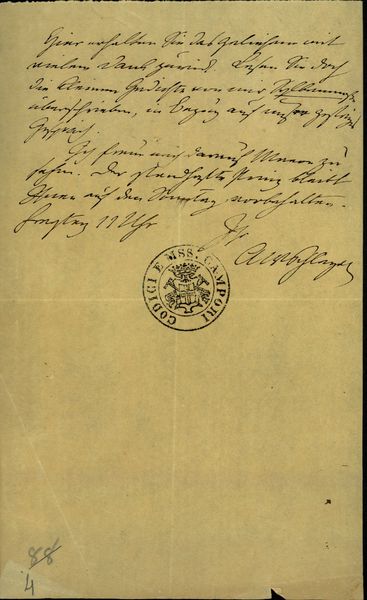 Hier erhalten Sie das Geliehene mit
vielem Dank zurück. Lesen Sie doch
die kleinen Gedichte von mir
überschrieben, in Bezug auf unser gestriges
Gespräch.
Ich freue mich darauf Sie zu
sehen. Der standhafte Prinz bleibt
Ihnen auf den Sonntag vorbehalten.
Freytag 11 Uhr Ihr
AWSchlegel
CODICI E MSS. CAMPORI
88
4